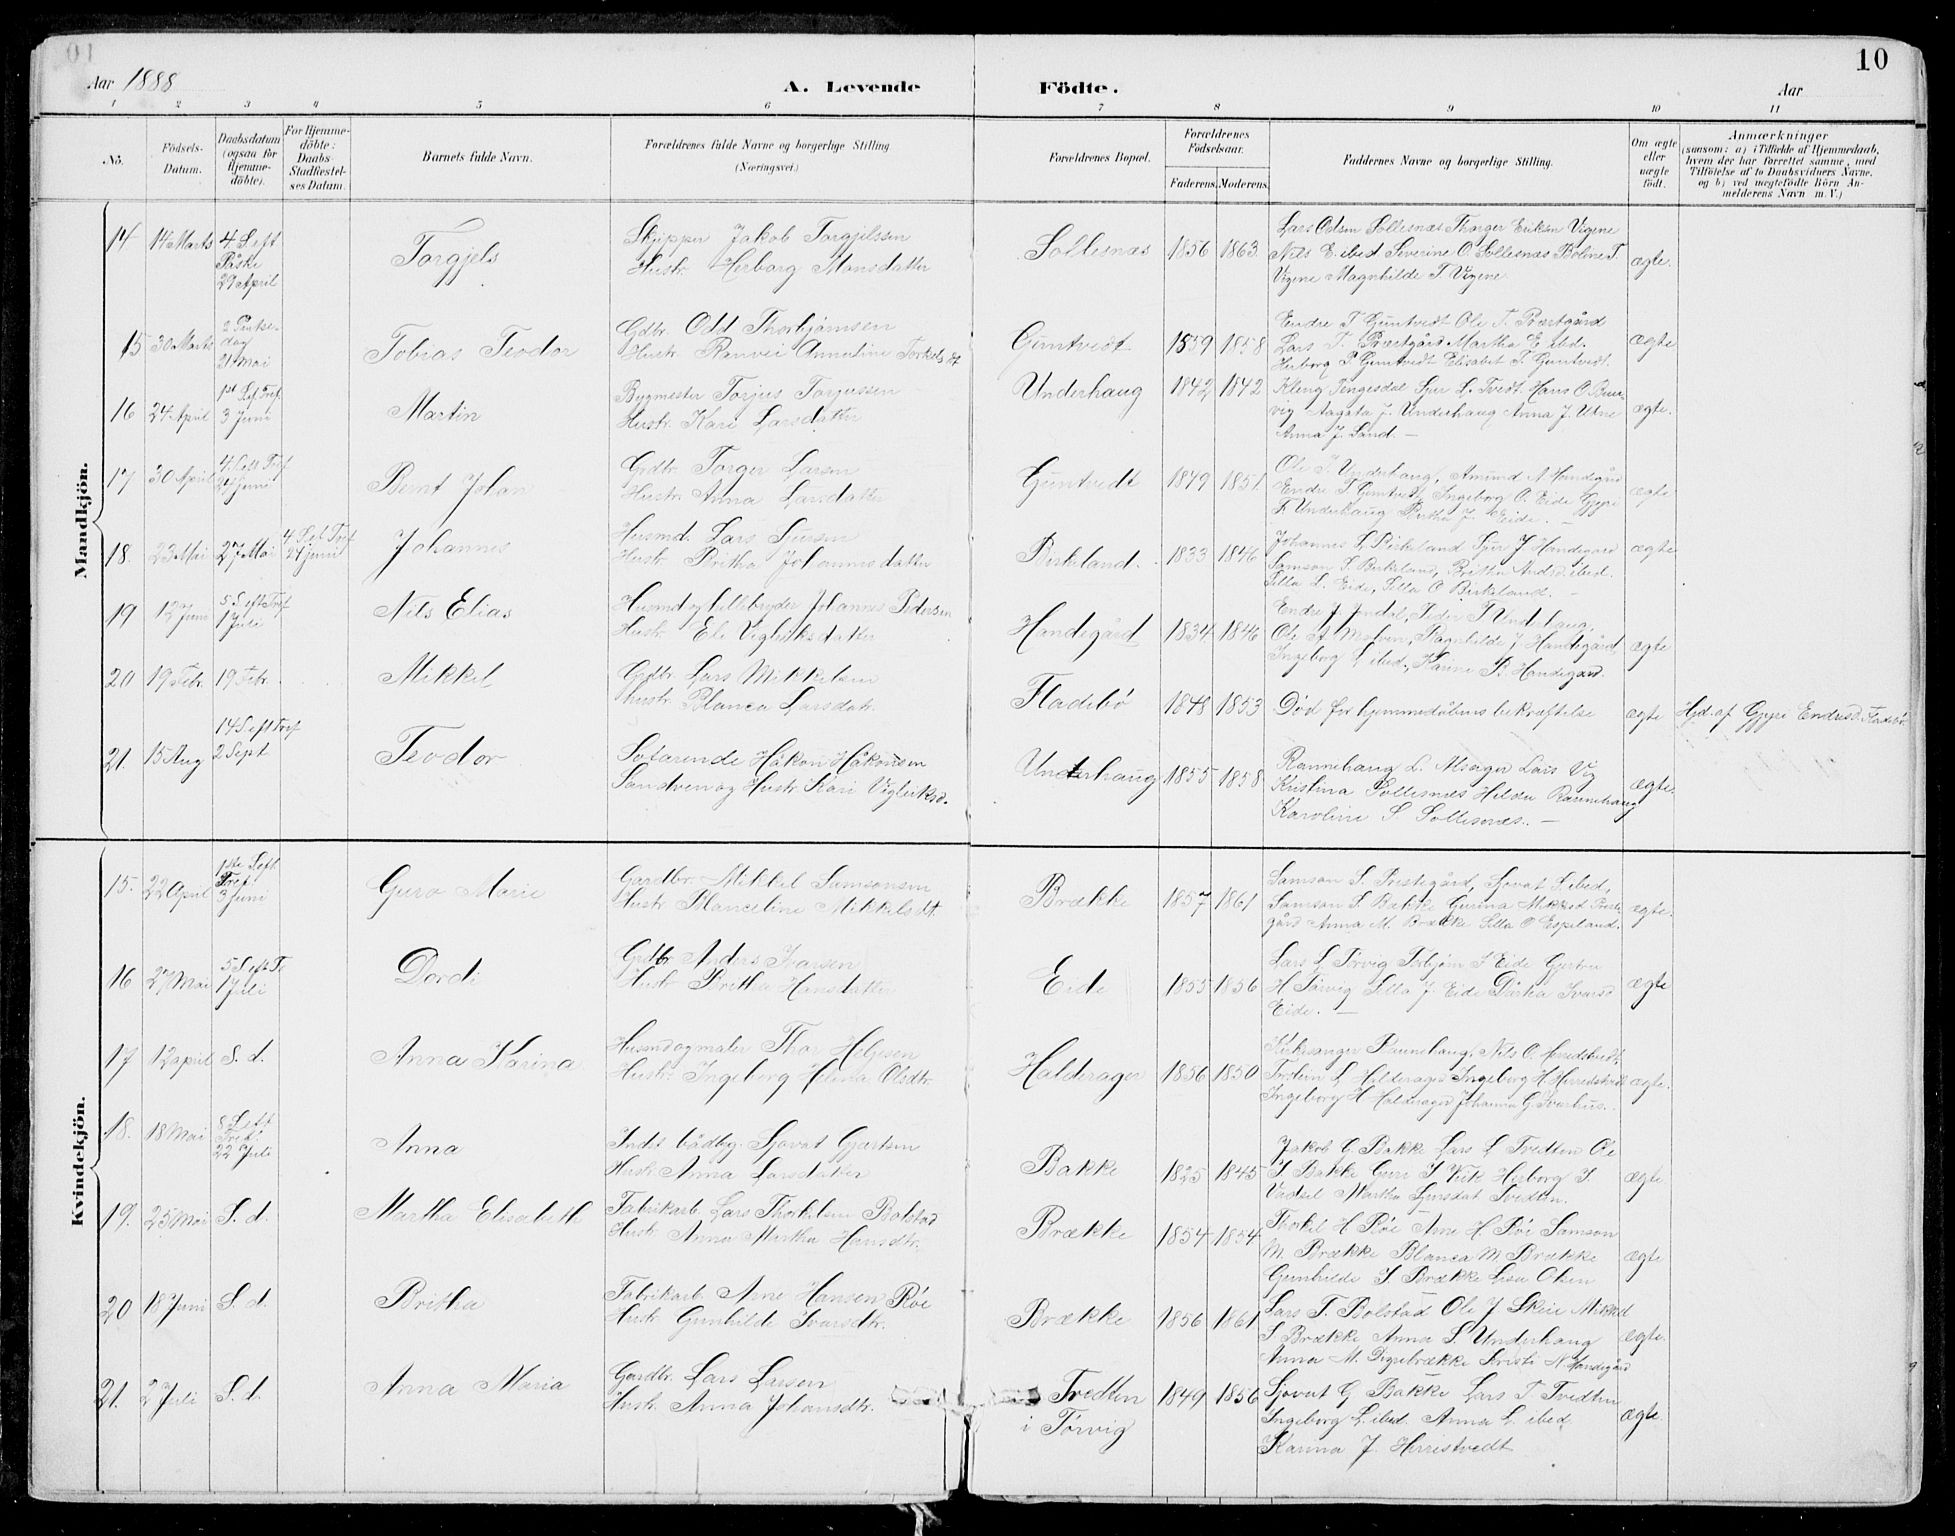 10
Aar 1888
A. Levende Födte.
Aar
1 2 3 4 5 6 7 8 9 10 11
No.
Födsels-Datum.
Daabsdatum (ogsaa for Hjemmedöbte).
For Hjemmedöbte: Daabs-Stadfæstelses Datum.
Barnets fulde Navn.
Forældrenes fulde Navne og borgerlige Stilling (Næringsvei.)
Forældrenes Bopæl.
Forældrenes Födselsaar.
Faderens. Moderens.
Faddernes Navne og borgerlige Stilling.
Om ægte eller uægte födt.
Anmærkninger
(saasom: a) i Tilfælde af Hjemmedaab, hvem der har forrettet samme, med Tilföielse af to Daabsvidners Navne, og b) ved uægtefödte Börn Anmelderens Navn m. V.)
Mandkjön.
14 14 Marts 4. S. eft Påske 29 April
Torgjels
Skipper Jakob Torgjilssen
Hustr. Herborg Monsdatter
Sollesnæs 1856 1863
Lars Odsen Sollesnæs Thorger Eriksen Vigene
Nils E. ibed Severine O. Sollesnæs Boline T.
Vigene Magnhilde T. Vigene
ægte.
15 30 Marts 2 Pintsedag 21 Mai
Tobias Teodor
Gdbr. Odd Thorbjørnsen
Hustr. Ranvei Anneline Torkelsdt
Guntvedt 1859 1858
Endre T Guntvedt Ole T. Prestgård
Lars T. Prestgård Martha E. ibd.
Herborg P. Guntvedt Elisabet T. Guntvedt.
ægte
16 24 April 1st S.ef.Tref. 3 Juni
Martin
Bygmester Torjus Torjussen
Hustr. Kari Larsdatter
Underhaug 1842 1842
Kleng Tengesdal Sjur L. Tvedt Hans O
vig Aagata J. Underhaug Anna J. Utne
Anna J. Sand. —
ægte.
17 30 April 4. S. eft Tref 24 Juni
Bernt Johan
Grdbr. Torger Larsen
Hustr. Anna Larsdatter
Guntvedt 1849 1851
Ole T. Underhaug, Amund N. Handegård
Endre T Guntvedt, Ingeborg O. Eide Gjyri
T. Underhaug Britha J. Eide. —
ægte
18. 23 Mai 27 Mai 4 S.ef. Tref 24 juni
Johannes
Husmd. Lars Sursen
Hustr. Britha Johannesdatter
Birkland. 1833 1846
Johannes S. Birkeland Sjur J Handegård
Samson S Birkeland, Britha And.d. ibed.
Silla L. Eide, Silla O Birkeland. —
ægte
19 12 Juni 5 S eft Tref 1 Juli
Nils Elias
Husmd og hellebryder Johannes Pedersen
Hustr. Eli Vigleiksdatter
Handegård 1834 1846
Endre J. Indal, Peder T Underhaug,
Ole A. Molven, Ragnhilde J. Handegård
Ingeborg L ibed., Karine B. Handegård.
ægte
20 19 Febr. 19 Febr.
Mikkel
Grdbr. Lars Mikkelsen
hustr. Blanca Larsdatr.
Fladebö 1848 1853
Död før hjemmedåbens bekræftelse
ægte
Hjd. af Gjyri Endresd. Fladebö
21. 15 Aug 14 S eft Tref 2 Sept
Teodor
Søfarende Håkon Håkonsen
Sandven og Hustr. Kari Vigleiksd.
Underhaug 1855 1858
Rannehaug L. Alsager Lars Vig
Kristina Sollesnæs Hilda Rannehaug
Karoline S Sollesnæs. —
ægte.
Kvindekjön.
15. 22 April 1ste S.eft. Tref. 3 Juni
Guro Marie
Gardbr. Mikkel Samsonsen
Hustr. Blanceline Mikkelsdt.
Brække 1857 1861
Samson S. Prestegård, Sjovat S. ibed,
Samson S. Brække Gurina Mikkelsd Preste
gård Anna M. Brække Silla O Espeland.
ægte.
16 27 Mai 5 S eft Tr 1 Juli
Dordi
Grdbr Anders Ivarsen
Hustr. Britha Hansdatter
Eide 1855 1856
Lars L Torvig Torbjørn S Eide Gjertru
H Tørvig Silla J. Eide Dårtea Ivarsd
Eide. —
ægte
17 12 april S. d.
Anna Karina
Husmd og maler Thor Heljesen
Hustr. Ingeborg Helena Olsdtr.
Halderager 1856 1850
Kirkesanger Rannehaug, Nils O. Herredstvedt.
Torstein L Halderager Ingeborg H. Herredstvedt
Ingeborg H Halderager Johanna G. Svarhus.
ægte.
18. 18 Mai 8 S eft Tref. 22 Juli
Anna
Indst. bådbyg. Sjovat Gjærtsen
Hustr. Anna Larsdatter
Bakke 1825 1845
Jakob G. Bakke Lars L Tvedten Ole
S Bakke Guri S Vik Herborg S.
Vadsel Martha Sjursdat Tvedten.
ægte
19. 25 Mai S. d.
Martha Elisabeth
Fabrikarb. Lars Thorkelsen Bolstad
Hustr. Anna Martha Hansdtr.
Brække 1854 1854
Thorkel H Røe Arne H. Røe Samson
M. Brække Blanca M. Brække
Gunhilde S. Brække Lisa Olsen
ægte
20 18 Juni S. d.
Britha
Fabrikarb. Arne Hansen Røe
Hustr. Gunhilde Ivarsdtr.
Brække 1856 1861
Lars T. Bolstad Ole J. Skeie Mikkel
S Brække Anna S. Underhaug
Anna M. Digrebrække Kristi N. Handegård
ægte.
21. 2 Juli S. d.
Anna Maria
Gardbr. Lars Larsen
Hustr. Anna Johansdtr.
Tvedten i Tørvig 1849 1856
Sjovat G Bakke Lars T. Tvedten
Ingeborg L ibed. Anna L. ibed
Karina J. Herristvedt
ægte.